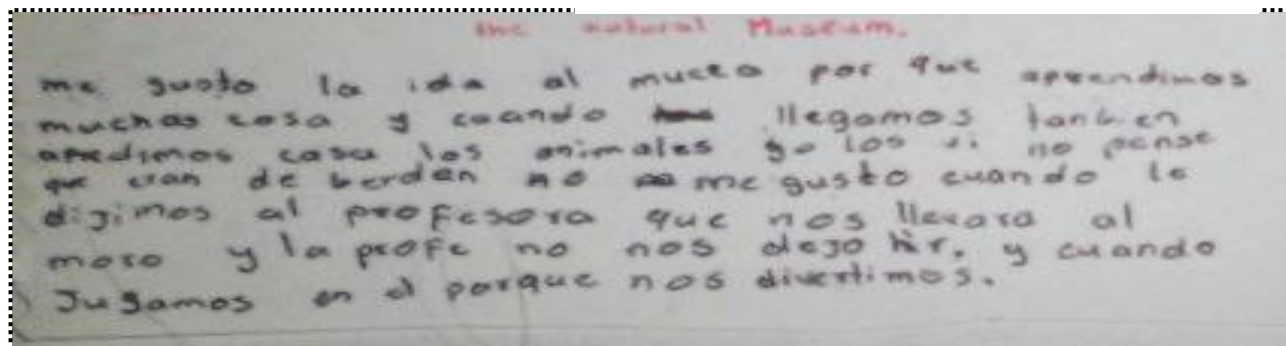 the natural Museum.
me gusto la ida al museo por que aprendimos
muchas cosa y cuando llegamos tanbien
apredimos casa los animales yo los vi no pense
que eran de berdan no me gusto cuando le
digimos al profesora que nos llevara al
moro y la profe no nos dejo hir. y cuando
Jugamos en el parque nos divertimos.